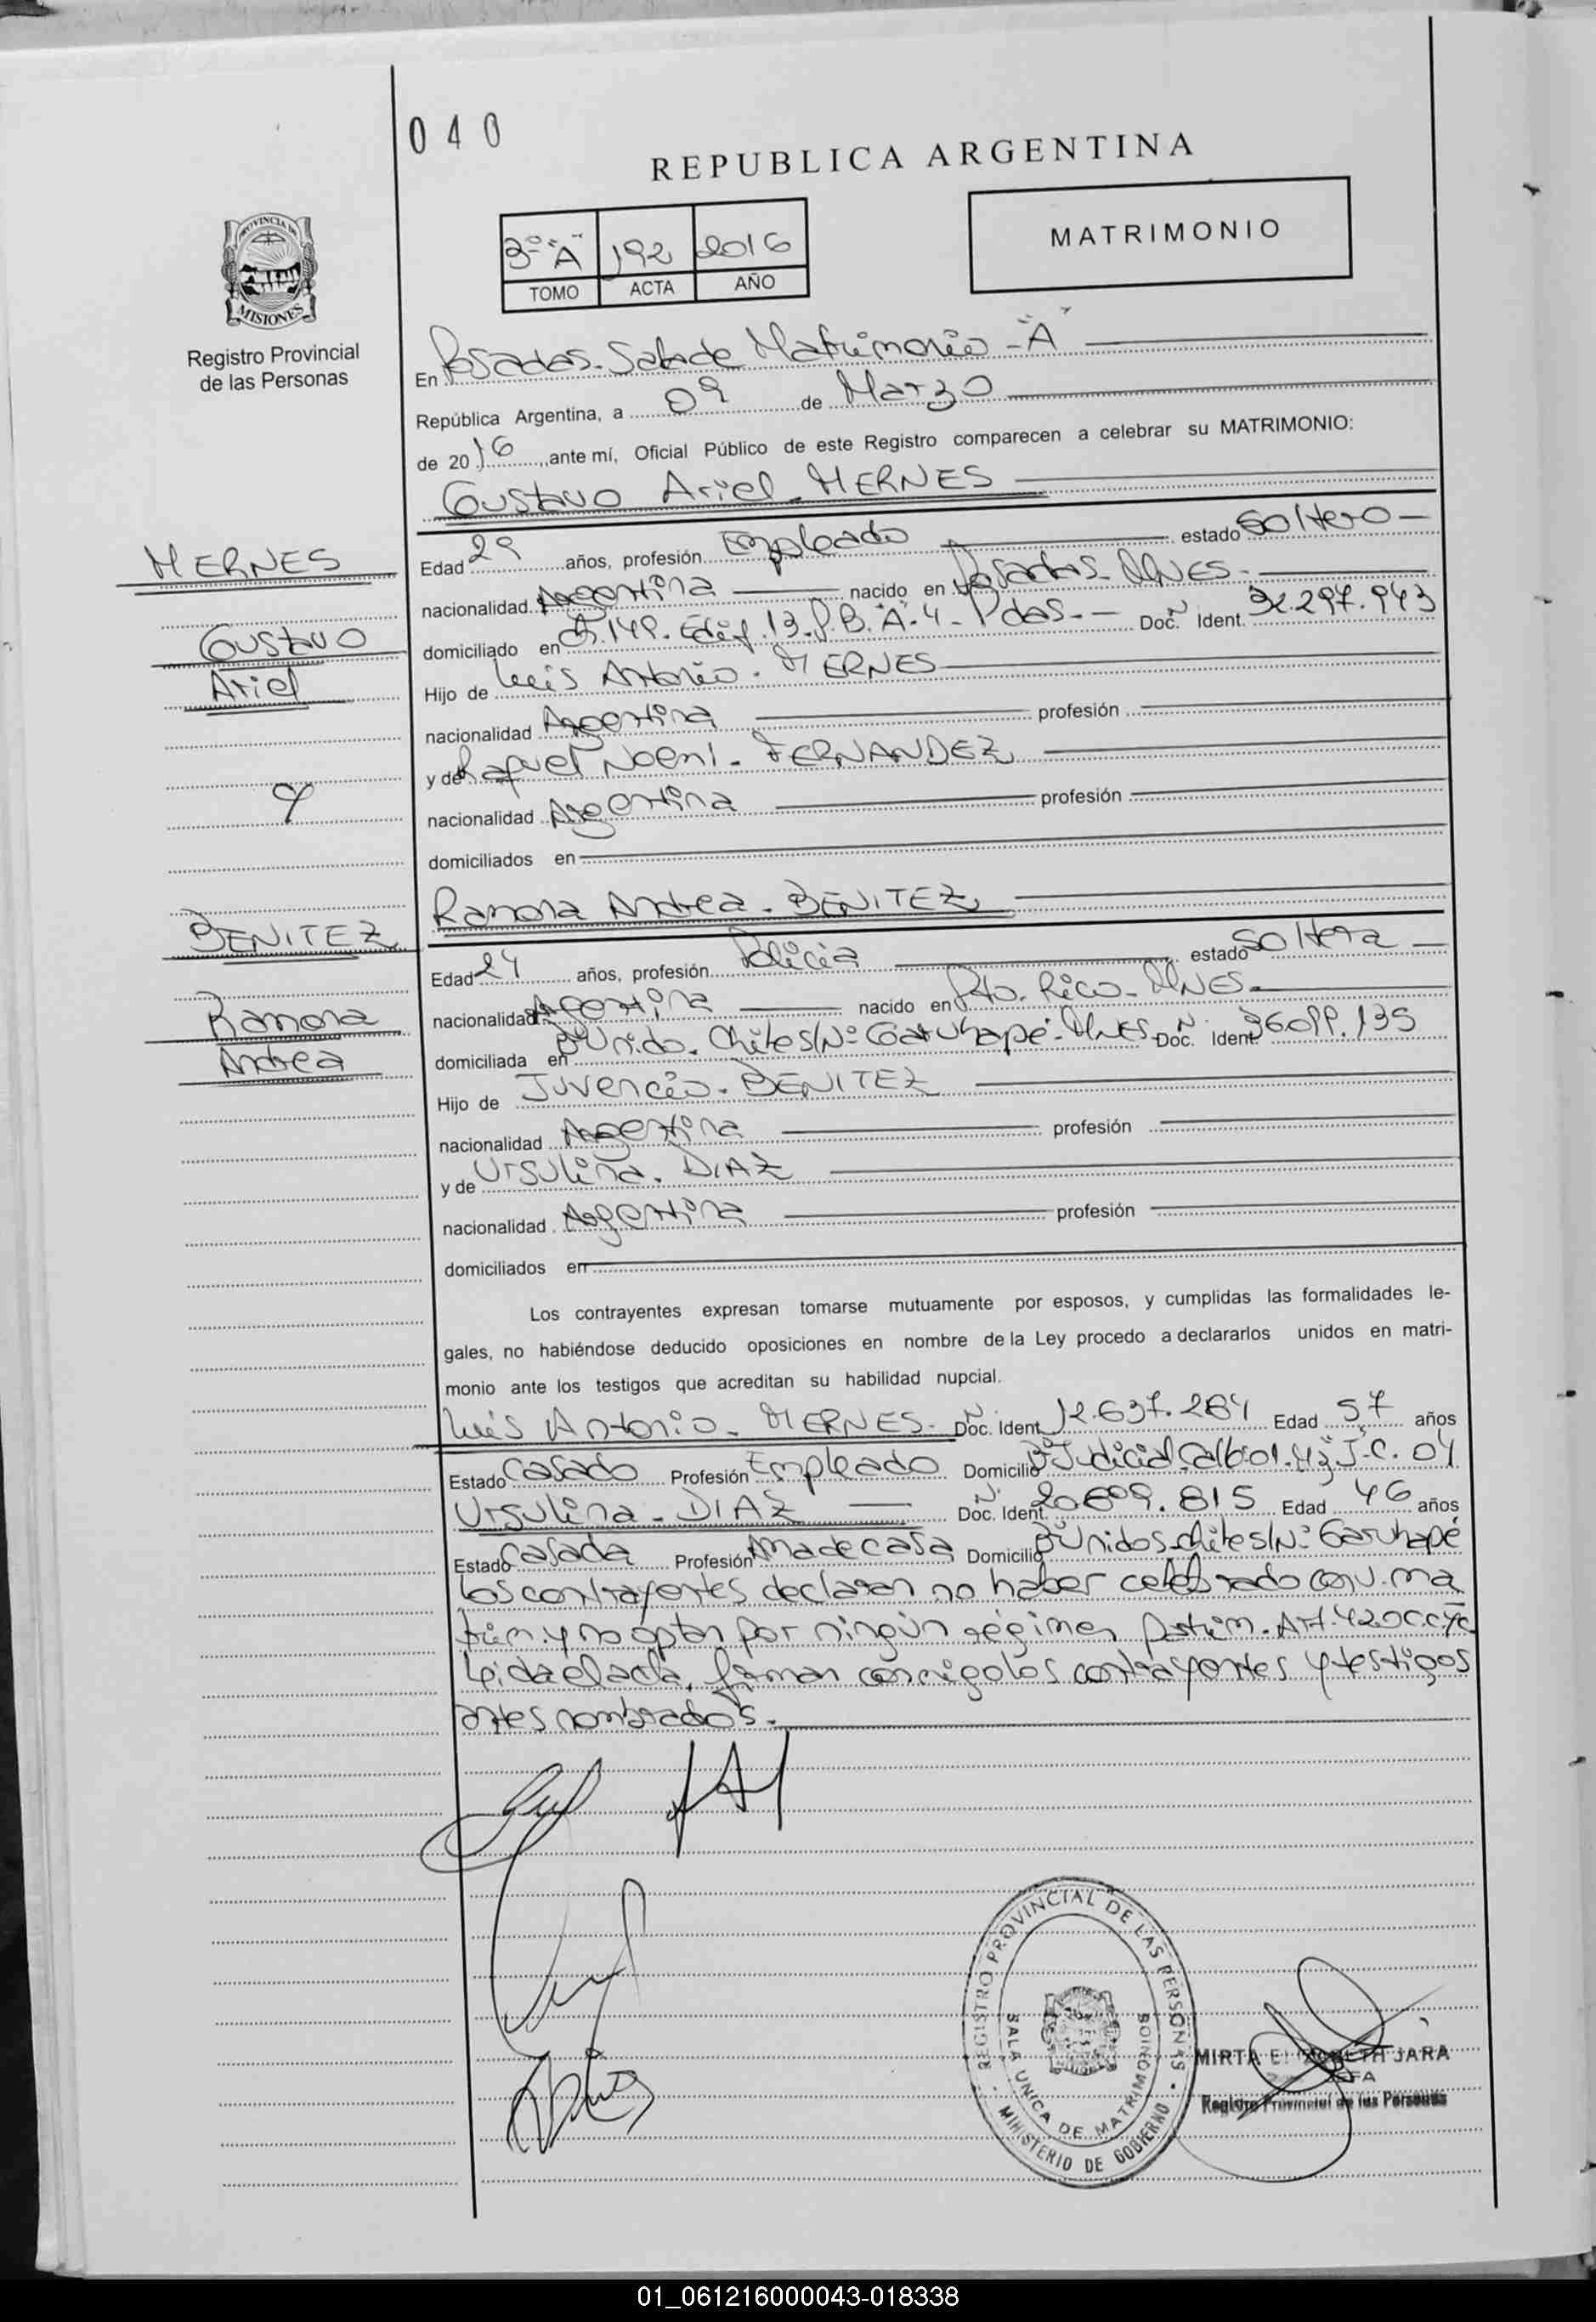 040
REPUBLICA ARGENTINA
PROVINCIA DE
MISIONES
Registro Provincial
de las Personas
3º "A" 192 2016
TOMO ACTA AÑO
MATRIMONIO
En Posadas. Sala de Matrimonio - "A"
República Argentina, a 09 de Marzo
de 2016, ante mí, Oficial Público de este Registro comparecen a celebrar su MATRIMONIO:
Gustavo Ariel. MERNES
MERNES
Gustavo
Ariel
Edad 29 años, profesión Empleado estado Soltero
nacionalidad Argentina nacido en Posadas. Mnes.
domiciliado en Edif. 13. P.B. "A". 4 - Pdas. Doc. Ident. 32.297.943
Hijo de Luis Antonio. MERNES
nacionalidad Argentina profesión
y de Raquel Noemi. FERNANDEZ
nacionalidad Argentina profesión
domiciliados en
y
Ramona Andrea. BENITEZ
BENITEZ
Ramona
Andrea
Edad 24 años, profesión Policia estado Soltera
nacionalidad Argentina nacido en Pto. Rico. Mnes.
domiciliada en Bº Unido. Chile S/Nº Garuhapé. Mnes. Doc. Nº Ident 36.099.135
Hijo de Juvencio. BENITEZ
nacionalidad Argentina profesión
y de Ursulina. DIAZ
nacionalidad Argentina profesión
domiciliados en
Los contrayentes expresan tomarse mutuamente por esposos, y cumplidas las formalidades le-
gales, no habiéndose deducido oposiciones en nombre de la Ley procedo a declararlos unidos en matri-
monio ante los testigos que acreditan su habilidad nupcial.
Luis Antonio. MERNES. Doc. Ident 12.637.284 Edad 57 años
Estado Casado Profesión Empleado Domicilio Bº Judicial J.C. 04
Ursulina. DIAZ Doc. Ident. 20.609.815 Edad 46 años
Estado Casada Profesión Ama de casa Domicilio Bº Unidos. Chile S/Nº Garuhapé
Los contrayentes declaran no haber celebrado conv. ma
trim. y no optan por ningún régimen patrim. Art. 420 C.C. y C
Leida el acta, firman conmigo los contrayentes y testigos
antes nombrados.
REGISTRO PROVINCIAL DE LAS PERSONAS
SALA UNICA DE MATRIMONIOS
MINISTERIO DE GOBIERNO
MIRTA JARA
Registro Provincial de las Personas
01_061216000043-018338